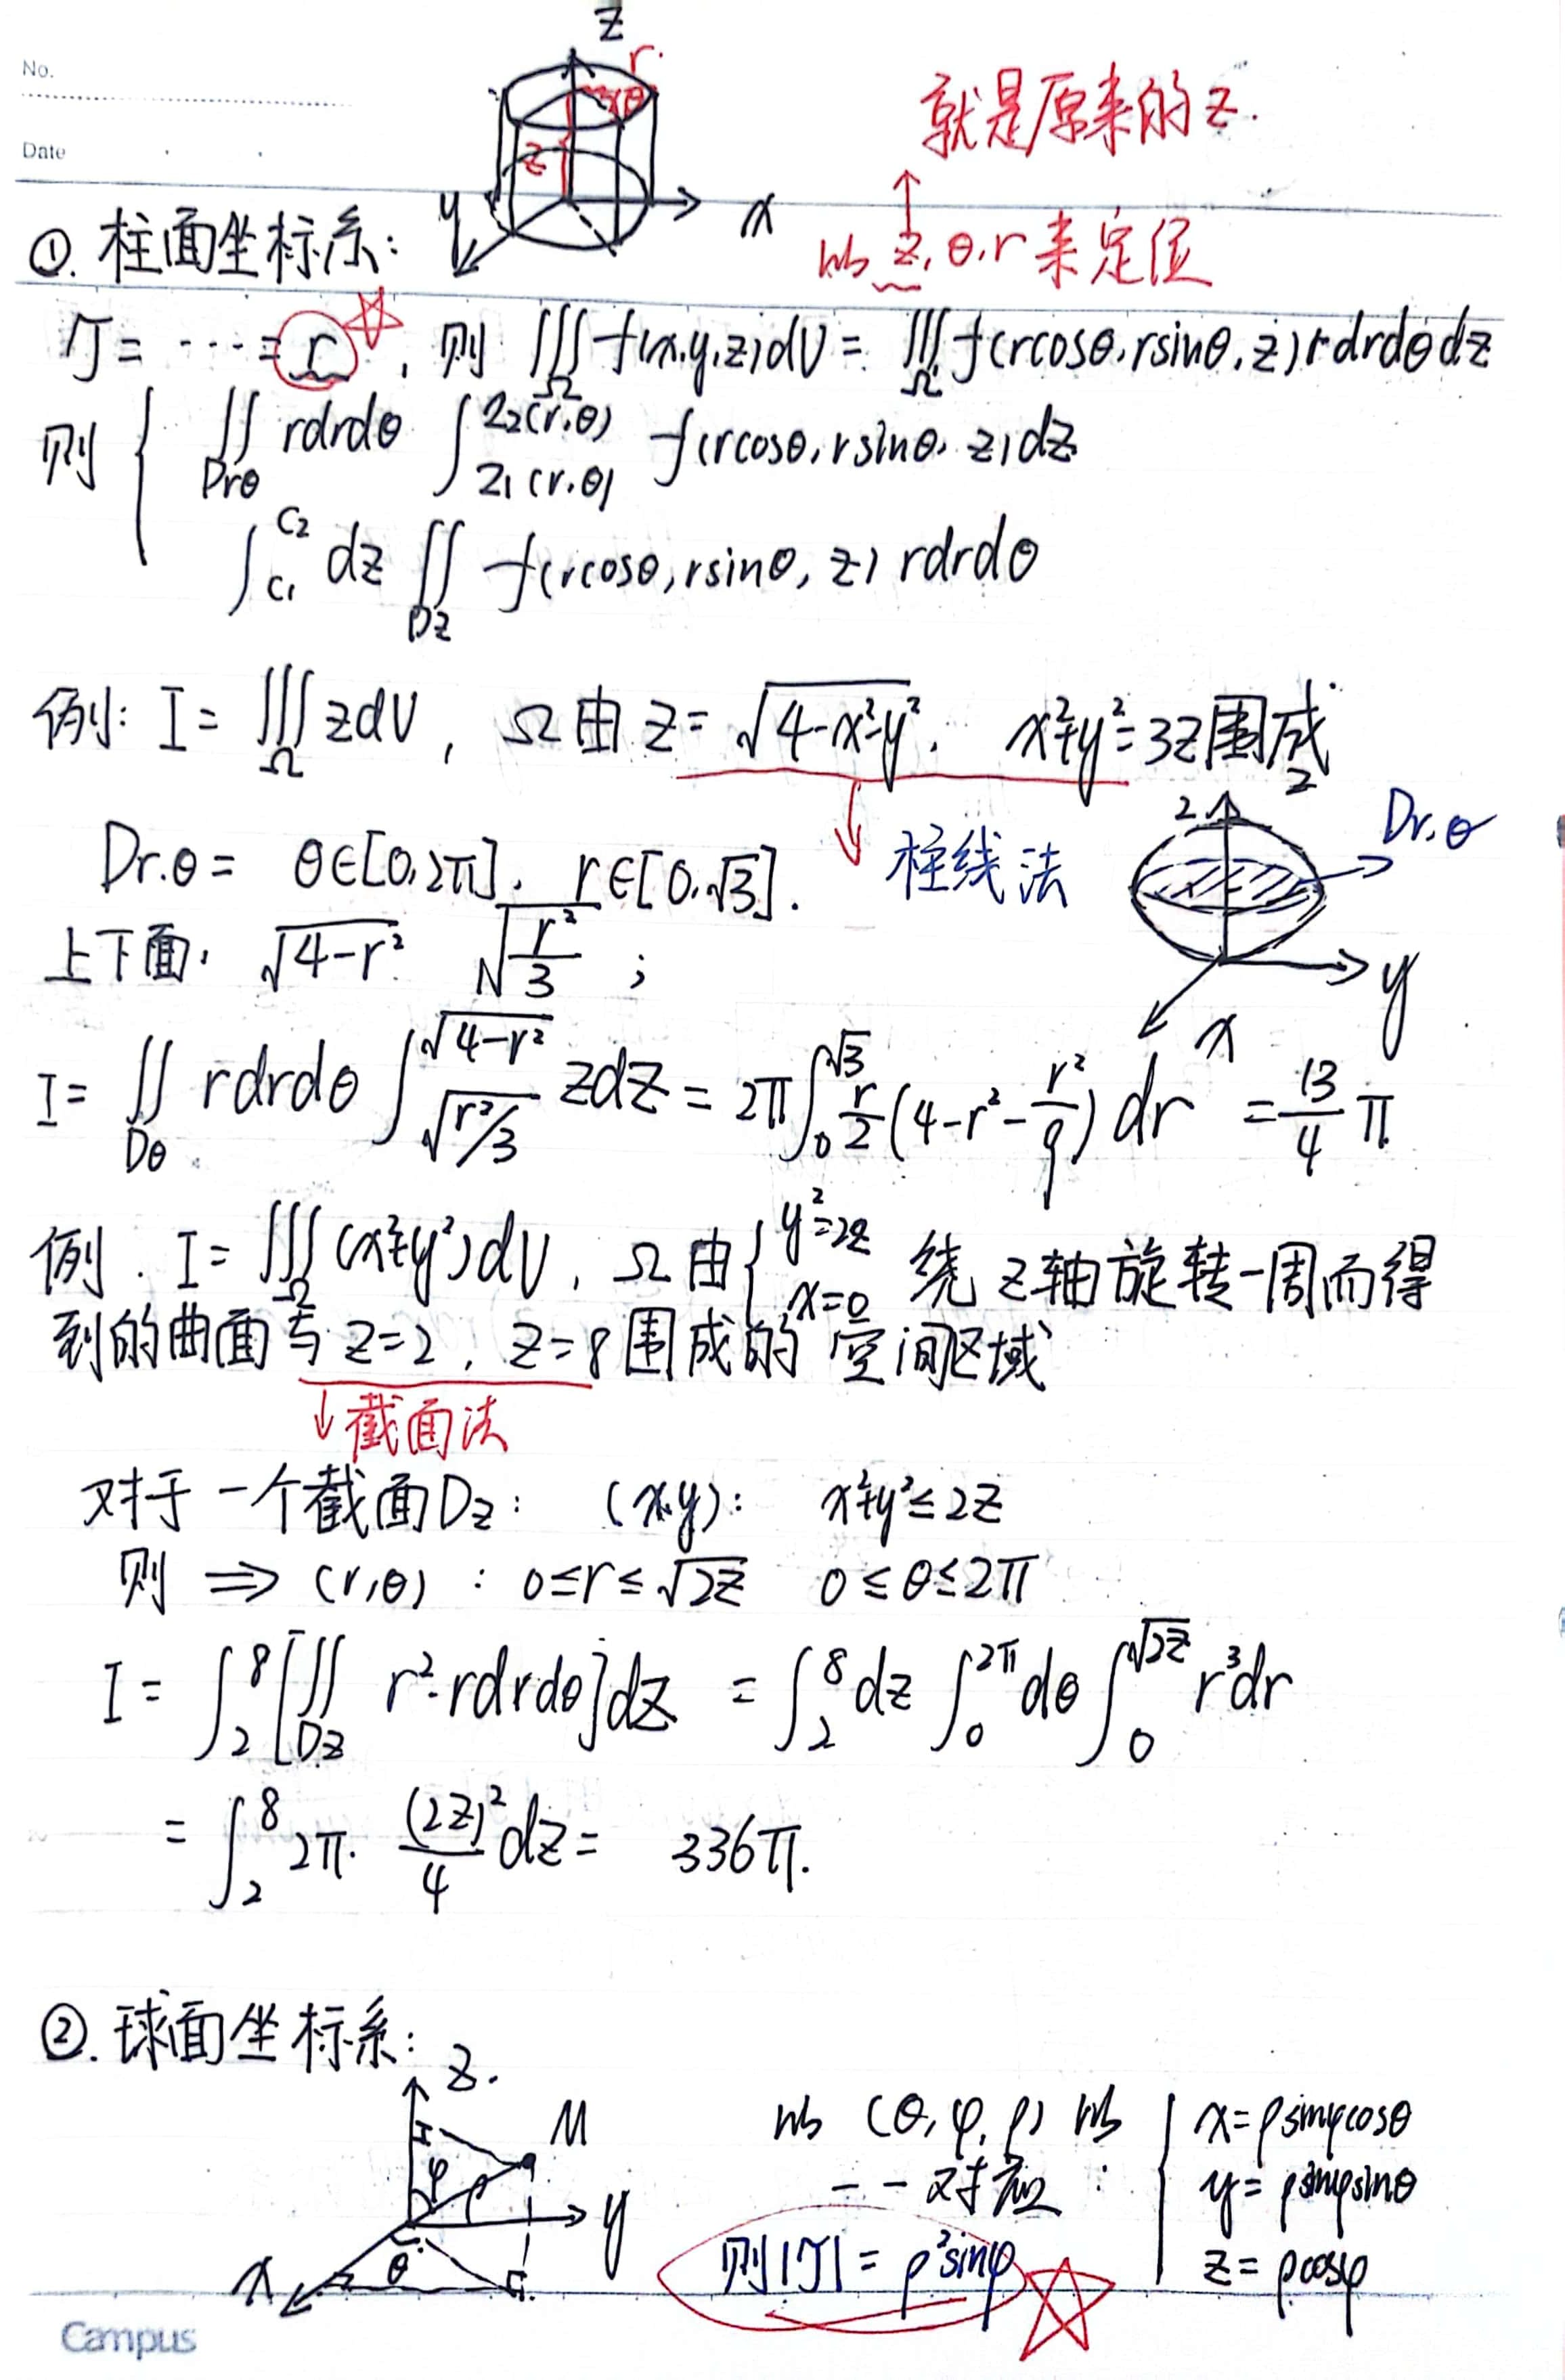 No.
Date
z
r.
θ
z
y
x
就是原来的z.
↑
①. 柱面坐标系:
以 z, θ, r 来定位
J = ⋯ = r ☆, 则 ∭_Ω f(x,y,z)dV = ∭_Ω f(rcosθ, rsinθ, z) r dr dθ dz
则 { ∬_{Drθ} rdrdθ ∫_{z₁(r,θ)}^{z₂(r,θ)} f(rcosθ, rsinθ, z)dz
∫_{C₁}^{C₂} dz ∬_{Dz} f(rcosθ, rsinθ, z) rdrdθ
例: I = ∭_Ω zdV, Ω由 z = √(4-x²-y²), x²+y²=3z围成
↓ 柱线法
z
2
Dr.θ
y
x
Dr.θ = θ∈[0,2π], r∈[0,√3].
上下面: √(4-r²) √(r²/3) ;
I = ∬_{Dθ} rdrdθ ∫_{√(r²/3)}^{√(4-r²)} zdz = 2π∫_0^{√3} r/2 (4-r²-r²/9) dr = 13/4 π
例. I = ∭_Ω (x²+y²)dV, Ω由 { y²=2z x=0 绕z轴旋转一周而得
到的曲面与z=2, z=8围成的空间区域
↓ 截面法
对于一个截面Dz: (x,y): x²+y²≤2z
则 ⇒ (r,θ) : 0≤r≤√(2z) 0≤θ≤2π
I = ∫_2^8 [∬_{Dz} r²·rdrdθ]dz = ∫_2^8 dz ∫_0^{2π} dθ ∫_0^{√(2z)} r³dr
= ∫_2^8 2π· (2z)²/4 dz = 336π.
②. 球面坐标系:
z.
M
φ
y
θ
x
以 (θ, φ, ρ) 以
一一对应 :
{ x=ρsinφcosθ
y=ρsinφsinθ
z=ρcosφ
则|J| = ρ²sinφ ☆
Campus